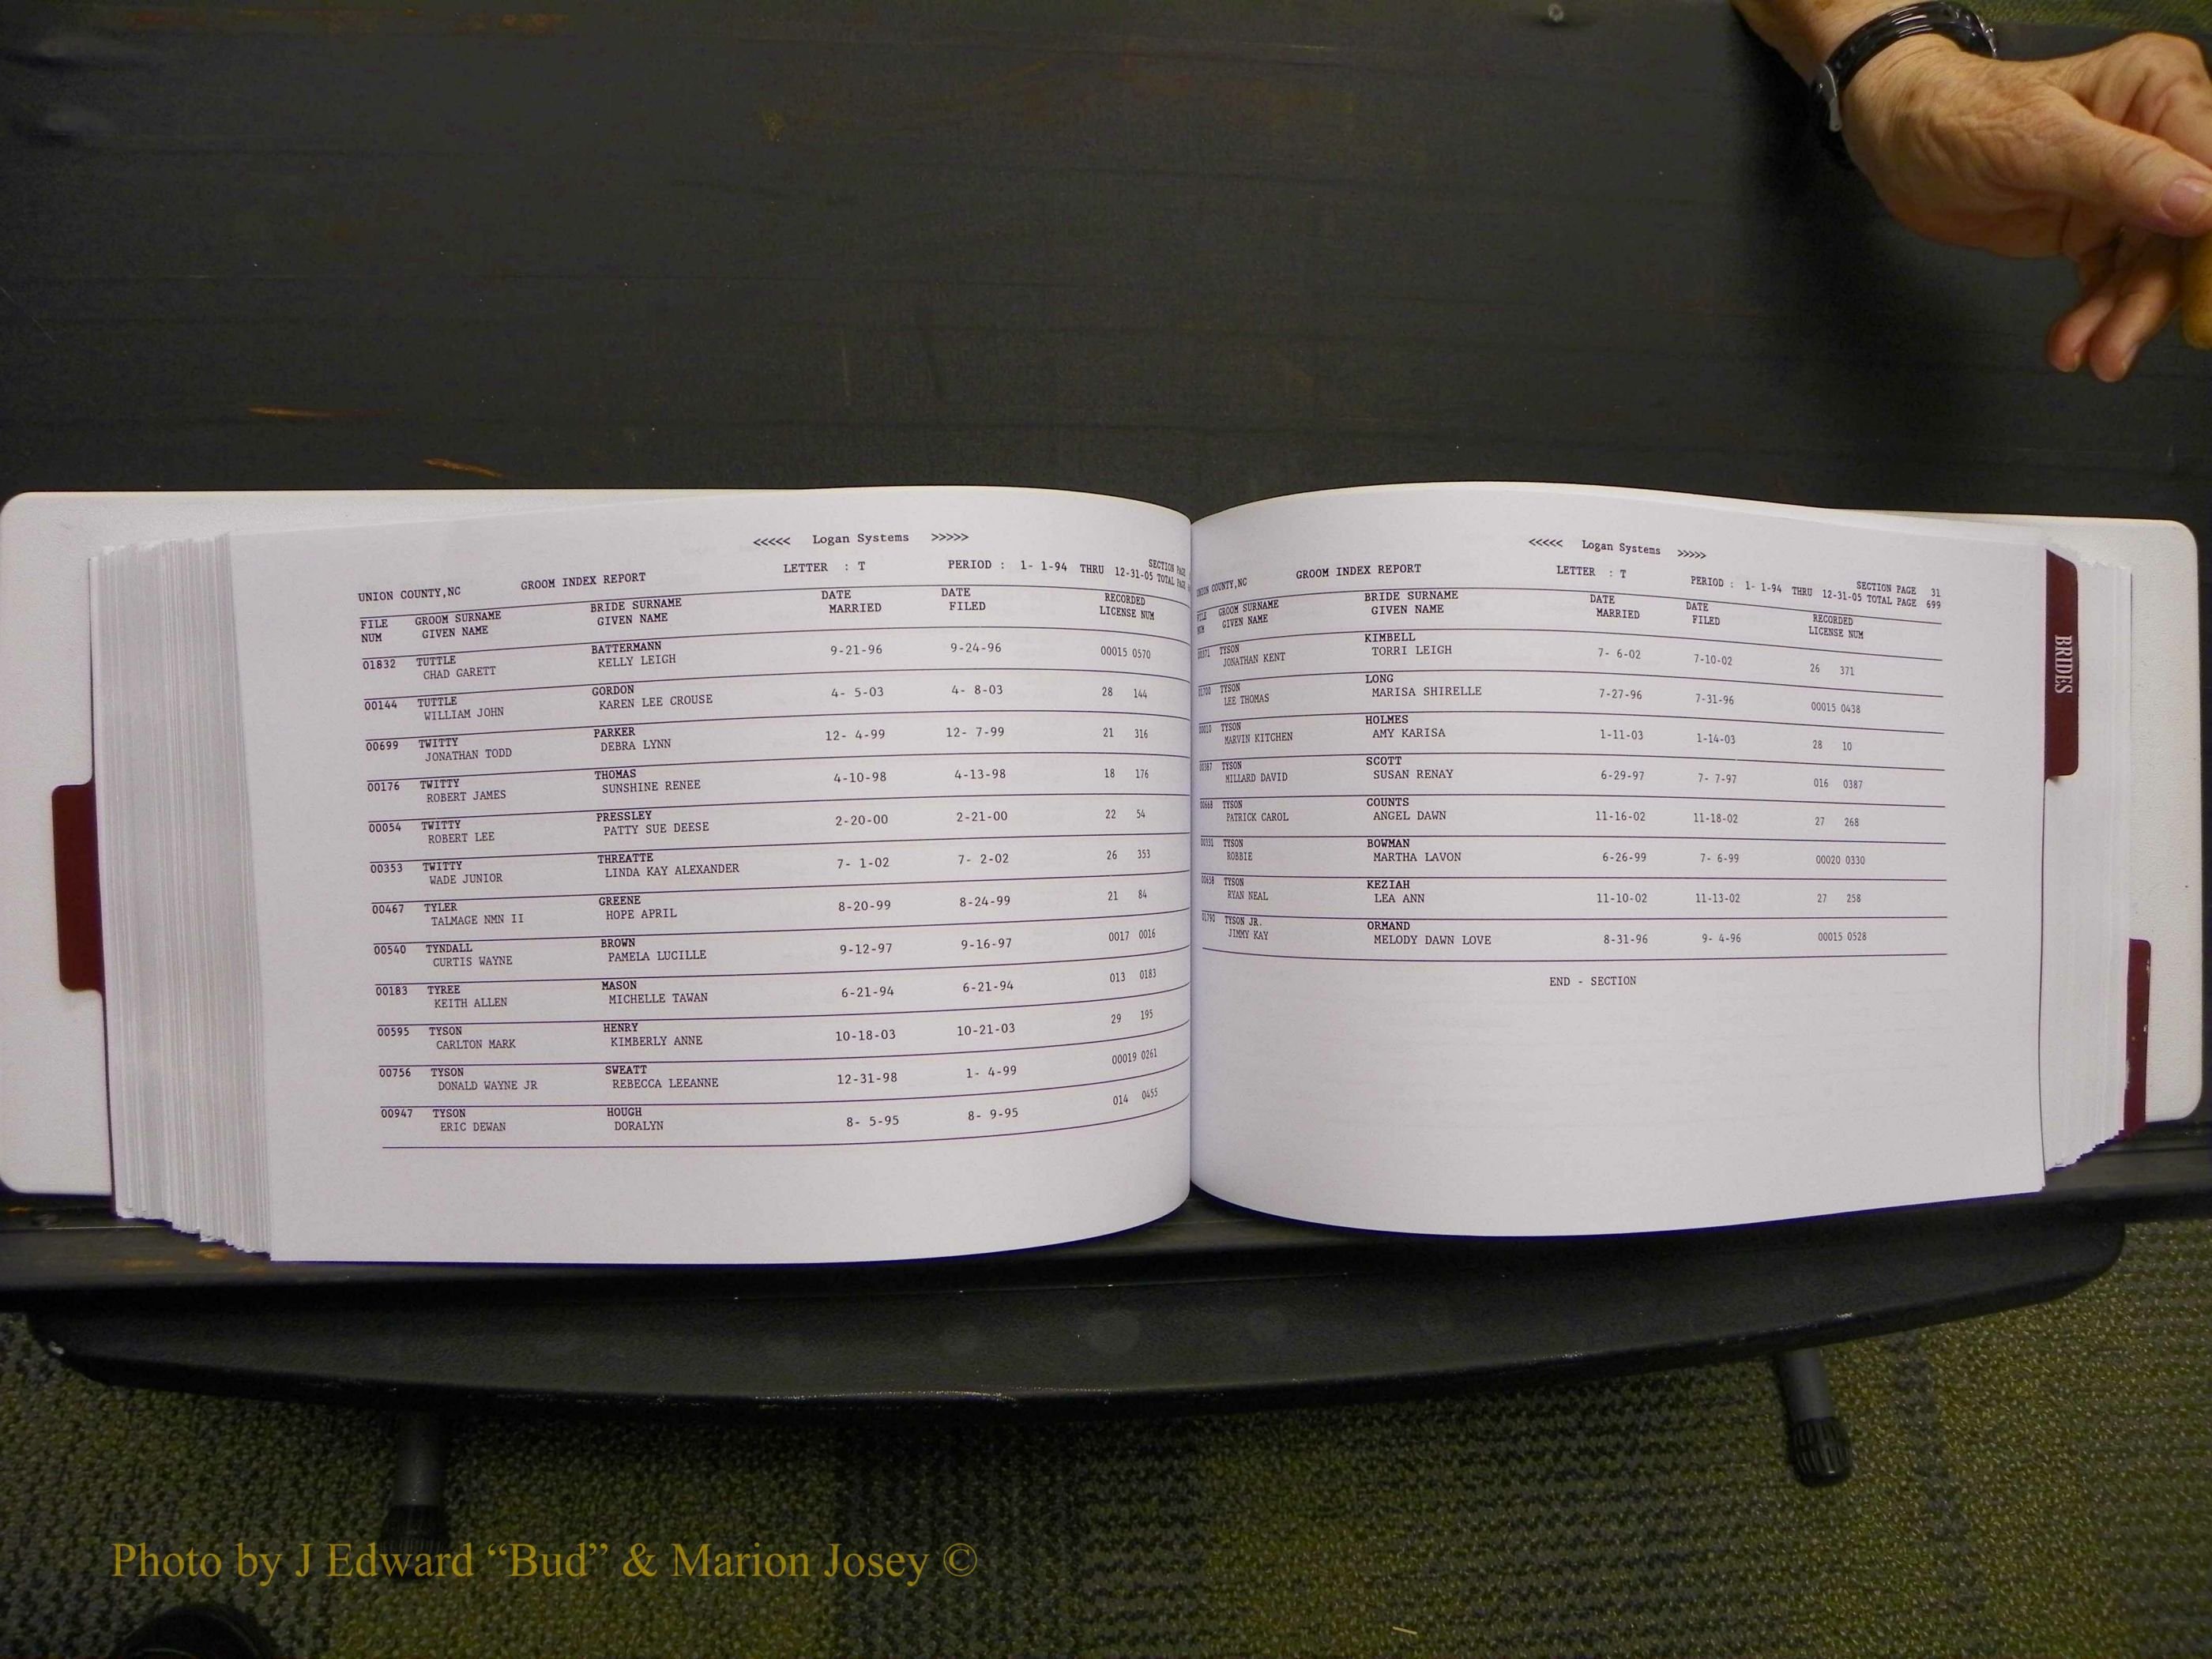 <<<<< Logan Systems >>>>>
UNION COUNTY,NC GROOM INDEX REPORT LETTER : T PERIOD : 1- 1-94 THRU 12-31-05 SECTION PAGE
TOTAL PAGE
FILE GROOM SURNAME BRIDE SURNAME DATE DATE RECORDED
NUM GIVEN NAME GIVEN NAME MARRIED FILED LICENSE NUM
01832 TUTTLE BATTERMANN 9-21-96 9-24-96 00015 0570
CHAD GARETT KELLY LEIGH
00144 TUTTLE GORDON 4- 5-03 4- 8-03 28 144
WILLIAM JOHN KAREN LEE CROUSE
00699 TWITTY PARKER 12- 4-99 12- 7-99 21 316
JONATHAN TODD DEBRA LYNN
00176 TWITTY THOMAS 4-10-98 4-13-98 18 176
ROBERT JAMES SUNSHINE RENEE
00054 TWITTY PRESSLEY 2-20-00 2-21-00 22 54
ROBERT LEE PATTY SUE DEESE
00353 TWITTY THREATTE 7- 1-02 7- 2-02 26 353
WADE JUNIOR LINDA KAY ALEXANDER
00467 TYLER GREENE 8-20-99 8-24-99 21 84
TALMAGE NMN II HOPE APRIL
00540 TYNDALL BROWN 9-12-97 9-16-97 0017 0016
CURTIS WAYNE PAMELA LUCILLE
00183 TYREE MASON 6-21-94 6-21-94 013 0183
KEITH ALLEN MICHELLE TAWAN
00595 TYSON HENRY 10-18-03 10-21-03 29 195
CARLTON MARK KIMBERLY ANNE
00756 TYSON SWEATT 12-31-98 1- 4-99 00019 0261
DONALD WAYNE JR REBECCA LEEANNE
00947 TYSON HOUGH 8- 5-95 8- 9-95 014 0455
ERIC DEWAN DORALYN
<<<<< Logan Systems >>>>>
UNION COUNTY,NC GROOM INDEX REPORT LETTER : T PERIOD : 1- 1-94 THRU 12-31-05 SECTION PAGE 31
TOTAL PAGE 699
FILE GROOM SURNAME BRIDE SURNAME DATE DATE RECORDED
NUM GIVEN NAME GIVEN NAME MARRIED FILED LICENSE NUM
TYSON KIMBELL 7- 6-02 7-10-02 26 371
JONATHAN KENT TORRI LEIGH
TYSON LONG 7-27-96 7-31-96 00015 0438
LEE THOMAS MARISA SHIRELLE
TYSON HOLMES 1-11-03 1-14-03 28 10
MARVIN KITCHEN AMY KARISA
TYSON SCOTT 6-29-97 7- 7-97 016 0387
MILLARD DAVID SUSAN RENAY
TYSON COUNTS 11-16-02 11-18-02 27 268
PATRICK CAROL ANGEL DAWN
TYSON BOWMAN 6-26-99 7- 6-99 00020 0330
ROBBIE MARTHA LAVON
TYSON KEZIAH 11-10-02 11-13-02 27 258
RYAN NEAL LEA ANN
TYSON JR. ORMAND 8-31-96 9- 4-96 00015 0528
JIMMY KAY MELODY DAWN LOVE
END - SECTION
BRIDES
Photo by J Edward “Bud” & Marion Josey ©